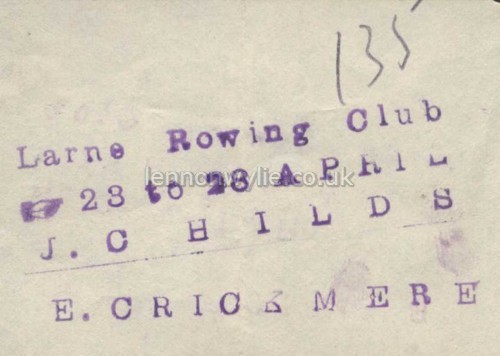 135
Larne Rowing Club
☞ 23 to 28 APRIL
lennonwylie.co.uk
J. CHILDS
E. CRICKMERE